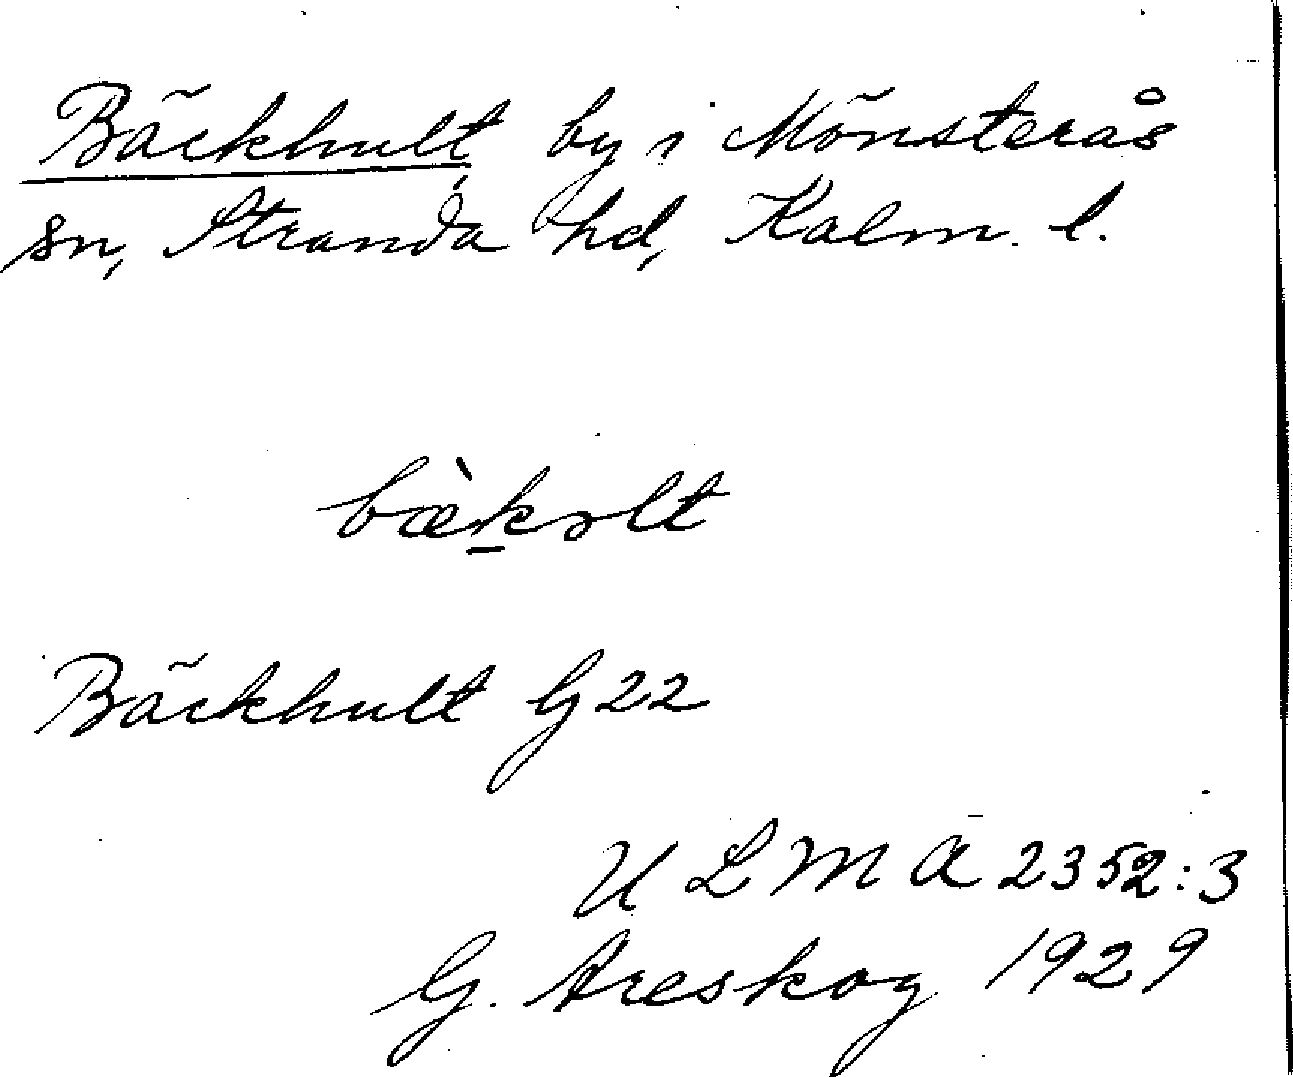 Bäckhult, by i Mönsterås
sn, Stranda hd, Kalm. l.
bæ̀ḵɔlt
Bäckhult G 22
ULMA 2352:3
G. Areskog 1929